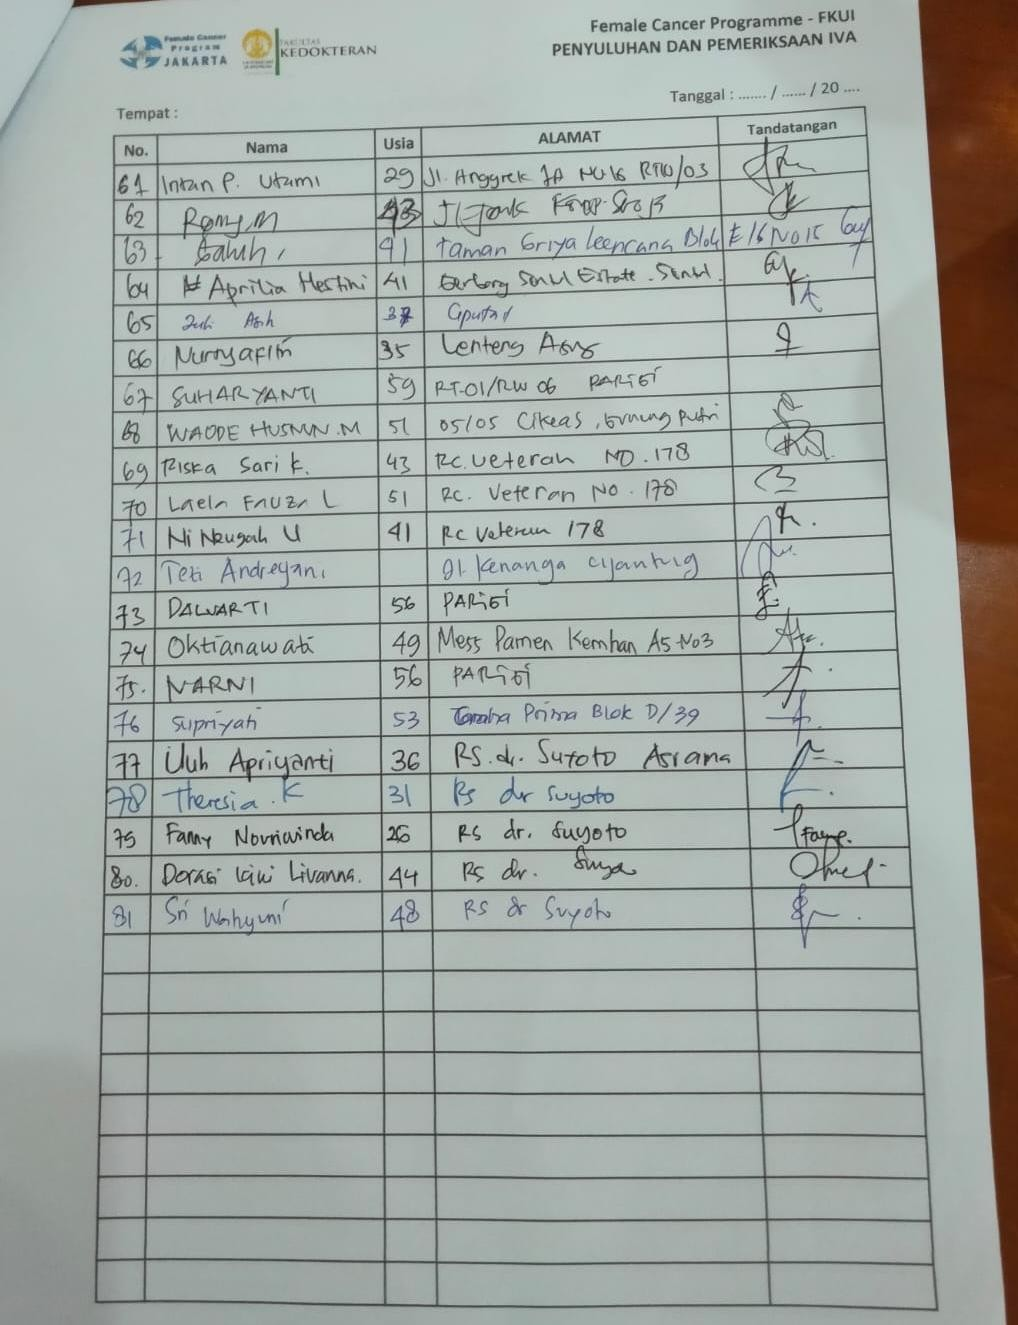 Female Cancer Program JAKARTA
FAKULTAS KEDOKTERAN
Female Cancer Programme - FKUI
PENYULUHAN DAN PEMERIKSAAN IVA
Tanggal : ....... / ...... / 20 ....
Tempat :
No. Nama Usia ALAMAT Tandatangan
61 Intan P. Utami 29 Jl. Anggrek
62 43
63 Galuh 41 Taman Griya Blok E 16 NO 15
64 Aprilia Hestini 41 Sentul Estate. Sentul
65 Asih 37 Ciputat
66 35 Lenteng Agung
67 SUHARYANTI 59 RT.01/RW 06 PARIGI
68 WAODE HUSNUN.M 51 05/05 Cikeas, Gunung Putri
69 Riska Sari K. 43 RC. Veteran NO. 178
70 Laela Fauza L 51 RC. Veteran NO. 178
71 Ni Nengah U 41 RC Veteran 178
72 Teti Andreyani Jl. Kenanga Cijantung
73 DALWARTI 56 PARIGI
74 Oktianawati 49 Mess Pamen Kemhan A5 No3
75. NARNI 56 PARIGI
76 Supriyati 53 Prima Blok D/39
77 Uub Apriyanti 36 RS. dr. Suyoto Asrama
78 Theresia. K 31 RS dr Suyoto
79 Fanny Novriwinda 26 RS dr. Suyoto
80. Dorasi Livanna. 44 RS dr.
81 Sri Wahyuni 48 RS dr Suyoto